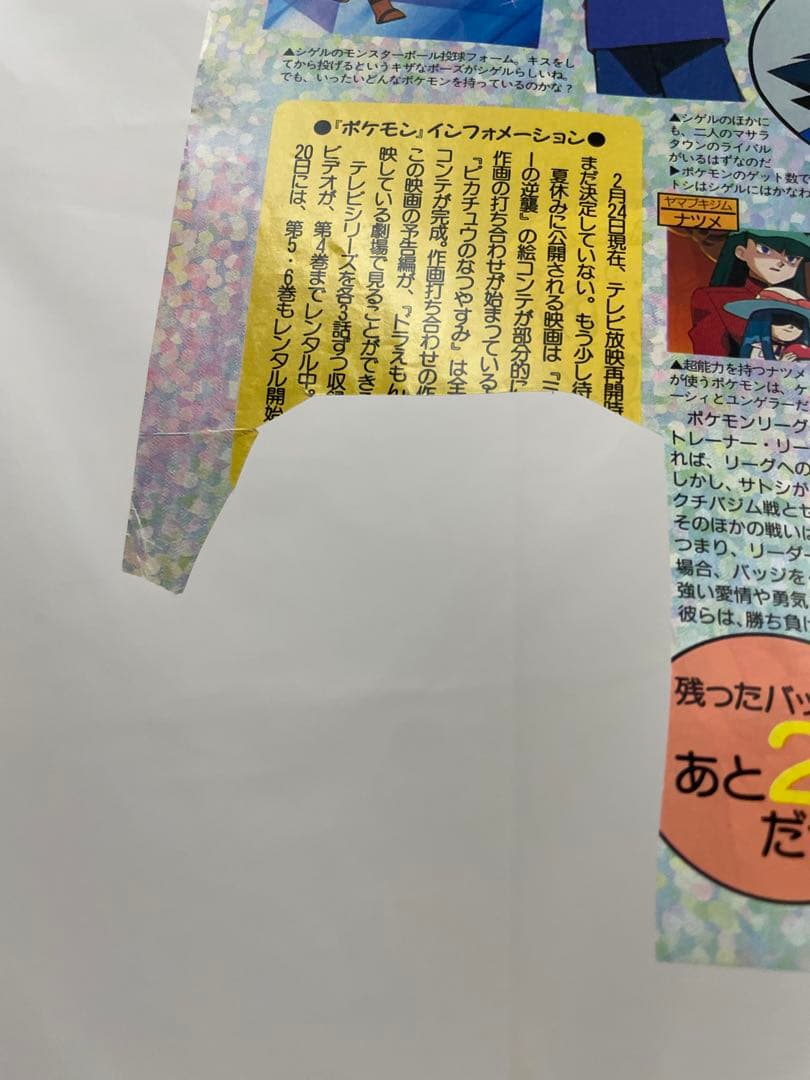 ▲シゲルのモンスターボール投球フォーム。キスをし
てから投げるというキザなポーズがシゲルらしいね。
でも、いったいどんなポケモンを持っているのかな?
▲シゲルのほかに
も、二人のマサラ
タウンのライバル
がいるはずなのだ
▶ポケモンのゲット数で
トシはシゲルにはかなわ
●『ポケモン』インフォメーション●
2月24日現在、テレビ放映再開時
まだ決定していない。もう少し待
夏休みに公開される映画は『ミ
ーの逆襲』の絵コンテが部分的に
作画の打ち合わせが始まっている
『ピカチュウのなつやすみ』は全
コンテが完成。作画打ち合わせの作
この映画の予告編が、『ドラえもん
映している劇場で見ることができ
テレビシリーズを各3話ずつ収録
ビデオが、第4巻までレンタル中。
20日には、第5・6巻もレンタル開始
ヤマブキジム
ナツメ
▲超能力を持つナツメ
が使うポケモンは、ケ
ーシィとユンゲラーだ
ポケモンリーグ
トレーナー・リー
れば、リーグへの
しかし、サトシが
クチバジム戦とセ
そのほかの戦いは
つまり、リーダー
場合、バッジを
強い愛情や勇気
彼らは、勝ち負け
残ったバッ
あと2
だ